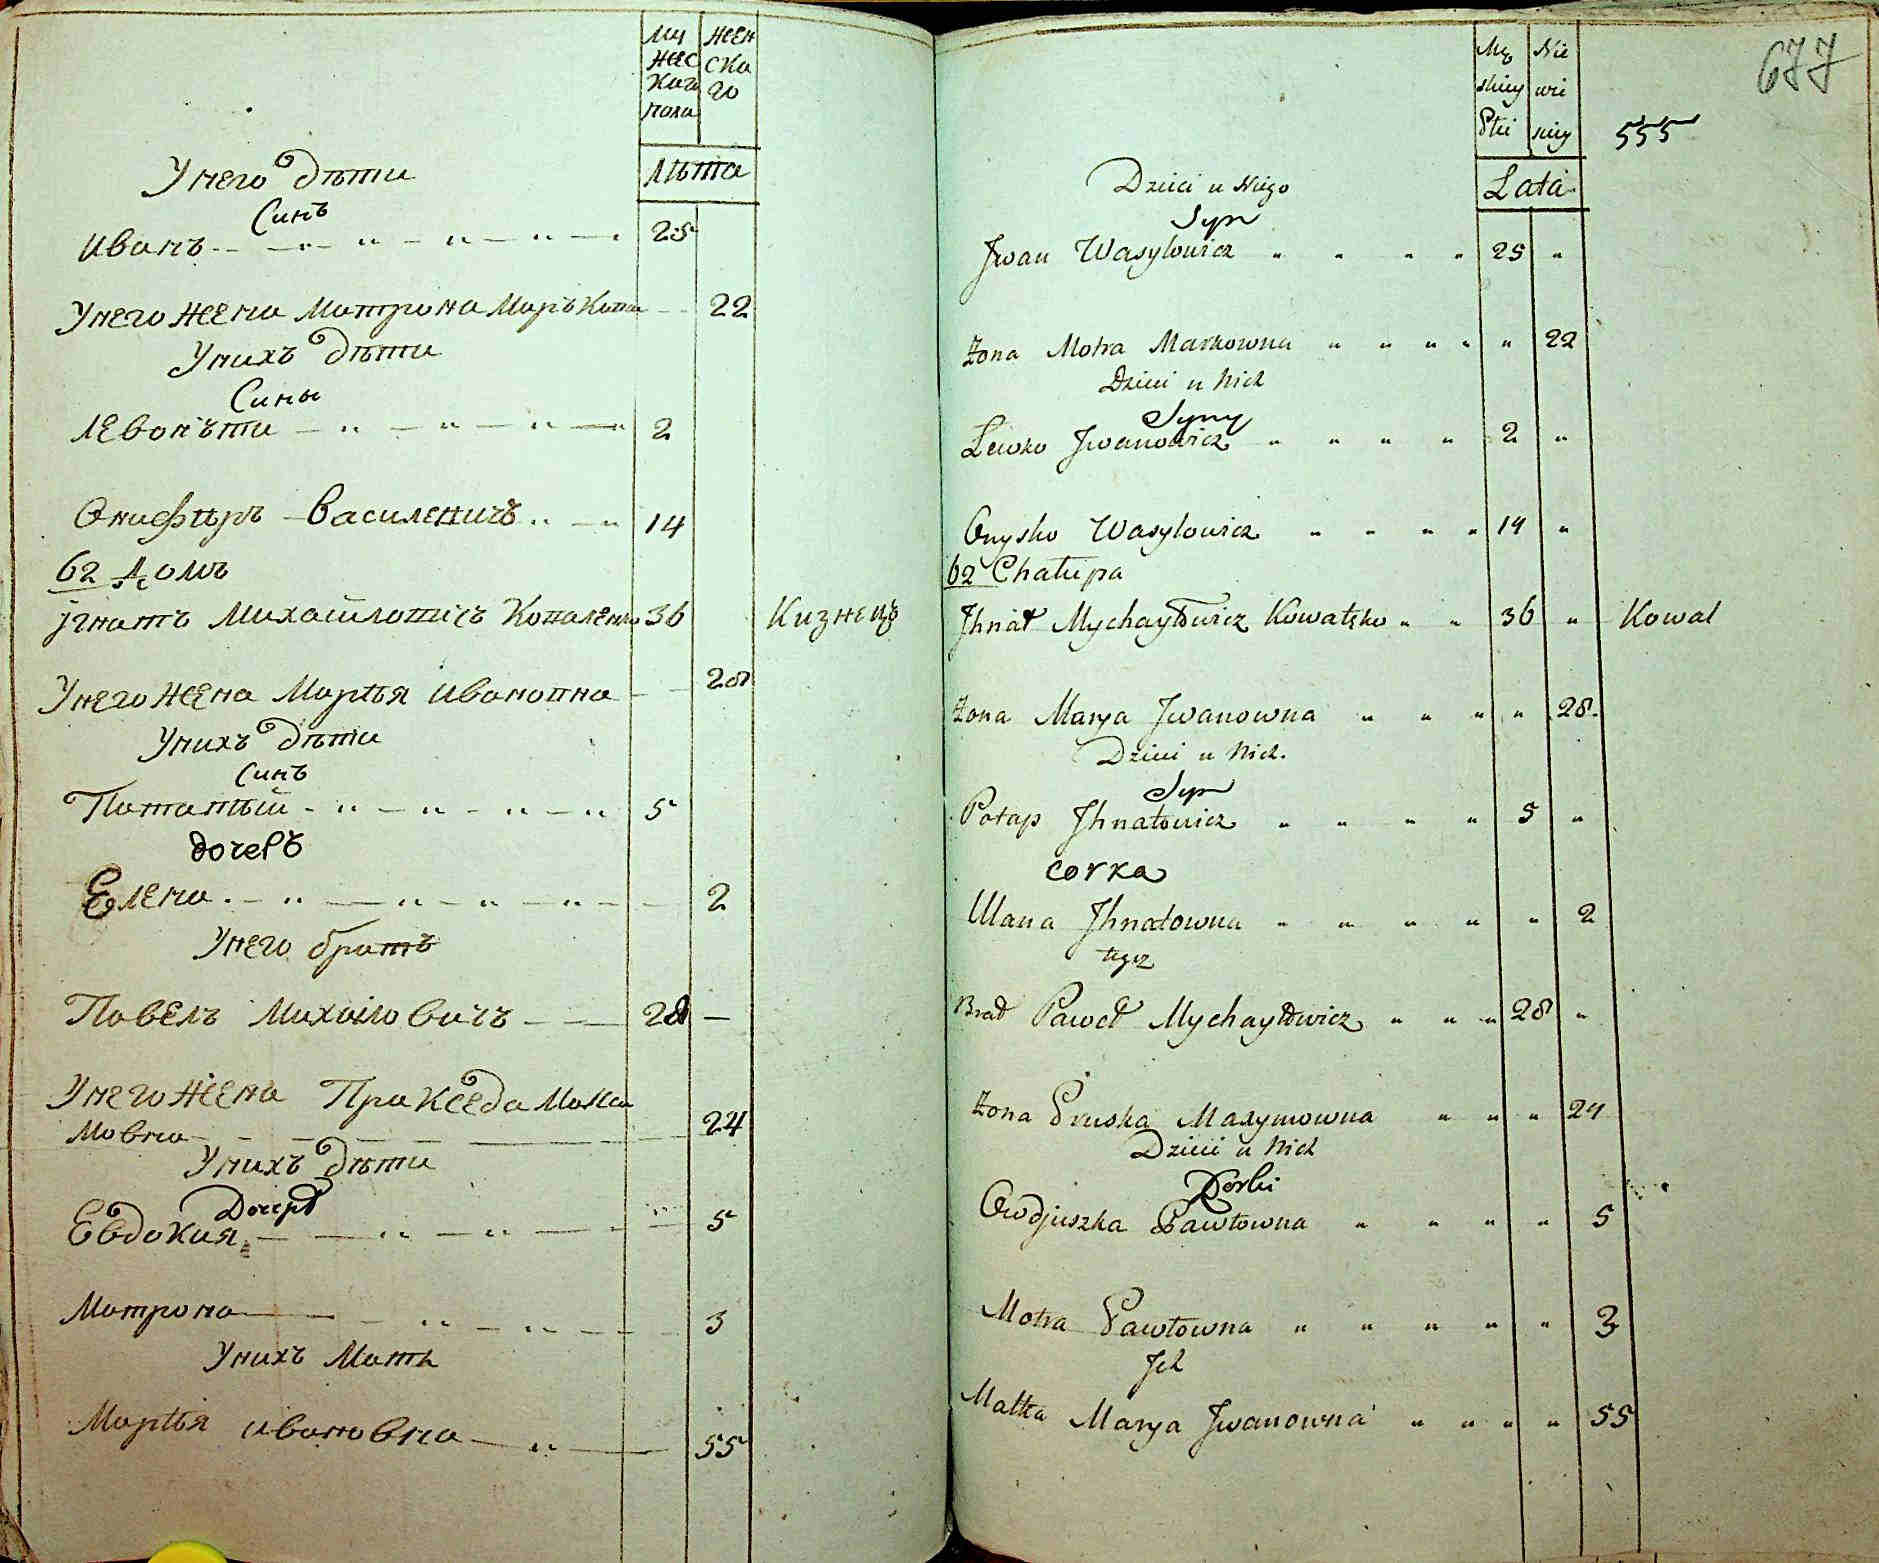 Му жес каго пола
жен ска го
Лѣта
У него дѣти
Синъ
Иванъ 25
У него жена Матрона Маръковна 22
У нихъ дѣти
Сины
Левонъти 2
Онисѣръ Василевичъ 14
62 Домъ
Јгнатъ Михайловичъ Коваленко 36 Кизнецъ
У него жена Маръя Ивановна 28
У нихъ дѣти
Синъ
Потапый 5
дочеръ
Елена 2
У него братъ
Павелъ Михайловичъ 28
У него жена Праксeда Макси
мовна 24
У нихъ дѣти
Дочеръ
Евдокия 5
Матрона 3
У нихъ Мать
Маръя Ивановна 55
677
Mę skiey Płci
Nie wie ściey
555
Lata
Dzieci u Niego
Syn
Jwan Wasylowicz 25
Żona Motra Markowna 22
Dzieci u Nich
Syny
Lewko Jwanowicz 2
Onysko Wasylowicz 14
62 Chałupa
Jhnat Mychayłowicz Kowalsko 36 Kowal
Żona Marya Jwanowna 28
Dzieci u Nich
Syn
Potap Jhnatowicz 5
corka
Ulana Jhnatowna 2
tegoż
Brat Paweł Mychayłowicz 28
Żona Pruska Maxymowna 24
Dzieci u Nich
Córki
Owdjuszka Pawłowna 5
Motra Pawłowna 3
Jch
Matka Marya Jwanowna 55